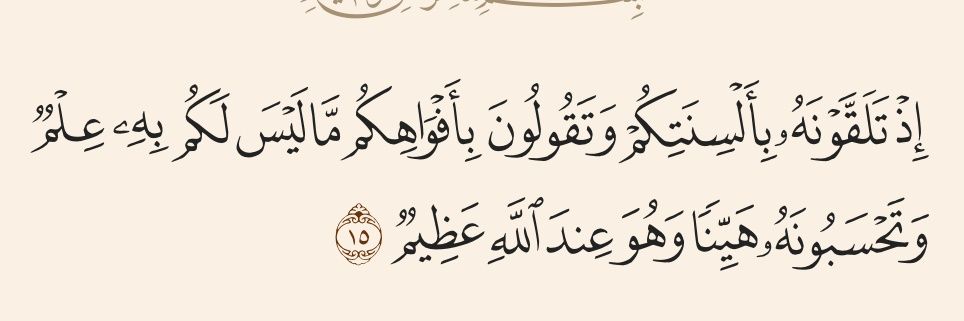 إِذْ تَلَقَّوْنَهُۥ بِأَلْسِنَتِكُمْ وَتَقُولُونَ بِأَفْوَاهِكُم مَّا لَيْسَ لَكُم بِهِۦ عِلْمٌ
وَتَحْسَبُونَهُۥ هَيِّنًا وَهُوَ عِندَ ٱللَّهِ عَظِيمٌ ١٥